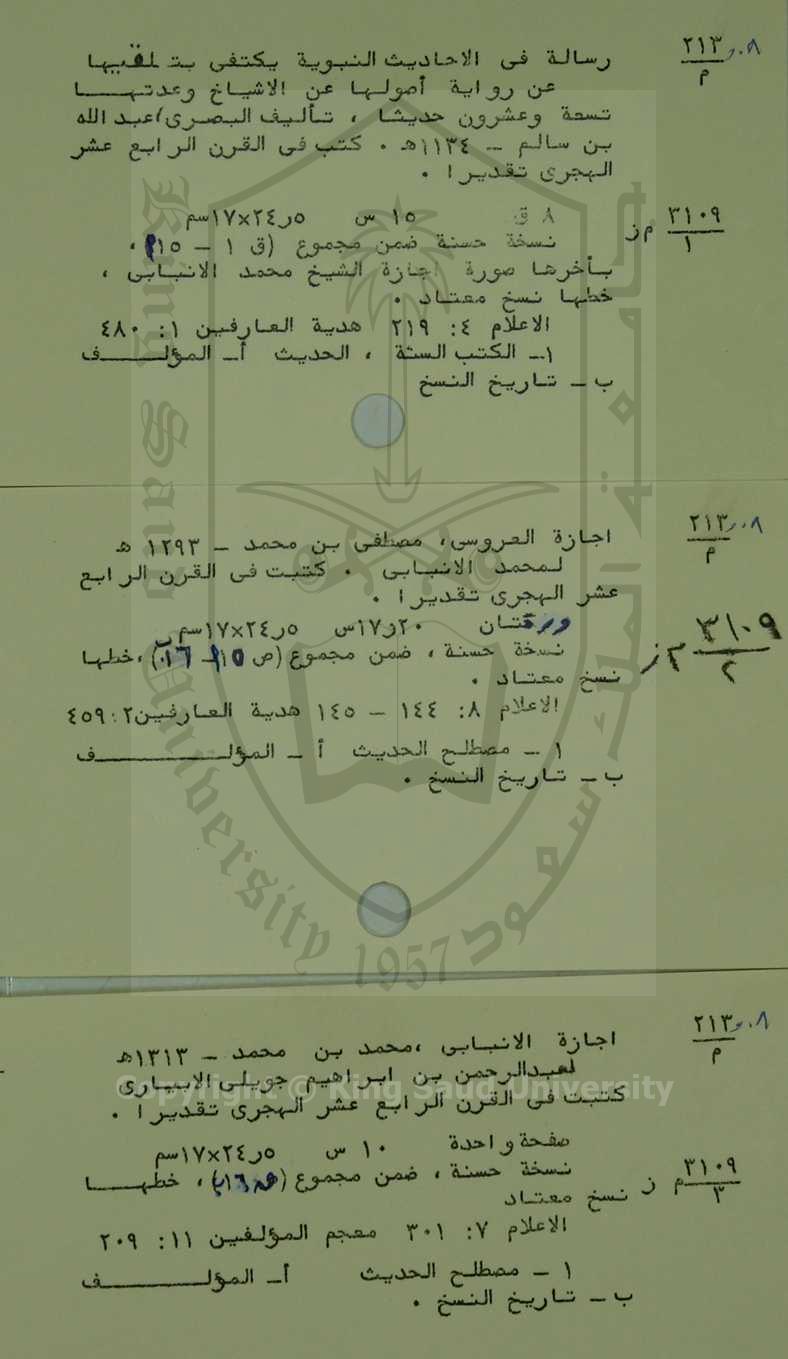 ٢١٣٫٠٨
م
رسالة فى الاحاديث النبوية يكتفى بتلقيها
عن رواية أصولها عن الاشياخ وعدتهـــا
تسعة وعشرون حديثا ، تأليف البصرى/عبد الله
بن سالم ـ ١١٣٤هـ . كتب فى القرن الرابع عشر
الهجرى تقديرا .
٣١٠٩
١
م ز
٨ ق ١٥ س ٥ر٢٤×١٧سم
نسخة حسنة ضمن مجموع (ق ١ - ١٥)،
بأخرها صورة اجازة الشيخ محمد الانبابى ،
خطها نسخ معتاد .
الاعلام ٤: ٢١٩ هدية العارفين ١: ٤٨٠
١ـ الكتب الستة ، الحديث أـ المؤلـــف
ب ـ تاريخ النسخ
٢١٣٫٠٨
م
اجازة العروسى، مصطفى بن محمد ـ ١٢٩٣ هـ
لمحمد الانبابى . كتبت فى القرن الرابع
عشر الهجرى تقديرا .
٣١٠٩
٢
م ز
ورقتان ٢٠ر١٧س ٥ر٢٤×١٧سم
نسخة حسنة ، ضمن مجموع (ص ١٥ - ١٦) ،خطها
نسخ معتاد .
الاعلام ٨: ١٤٤ - ١٤٥ هدية العارفين٢: ٤٥٩
١ ـ مصطلح الحديث أ ـ المؤلــــــف
ب ـ تاريخ النسخ .
٢١٣٫٠٨
م
اجازة الانبابى ،محمد بن محمد ـ ١٣١٣هـ
لعبدالرحمن بن ابراهيم جويلى الابيارى
كتبت فى القرن الرابع عشر الهجرى تقديرا .
٣١٠٩
٣
م ز
صفحة واحدة ١٠ س ٥ر٢٤×١٧سم
نسخة حسنة ، ضمن مجموع (ق ١٦)، خطهـــا
نسخ معتاد
الاعلام ٧: ٣٠١ معجم المؤلفين ١١: ٢٠٩
١ ـ مصطلح الحديث أـ المؤلــــــف
ب ـ تاريخ النسخ .
جامعة الملك سعود
King Saud University 1957
Copyright © King Saud University